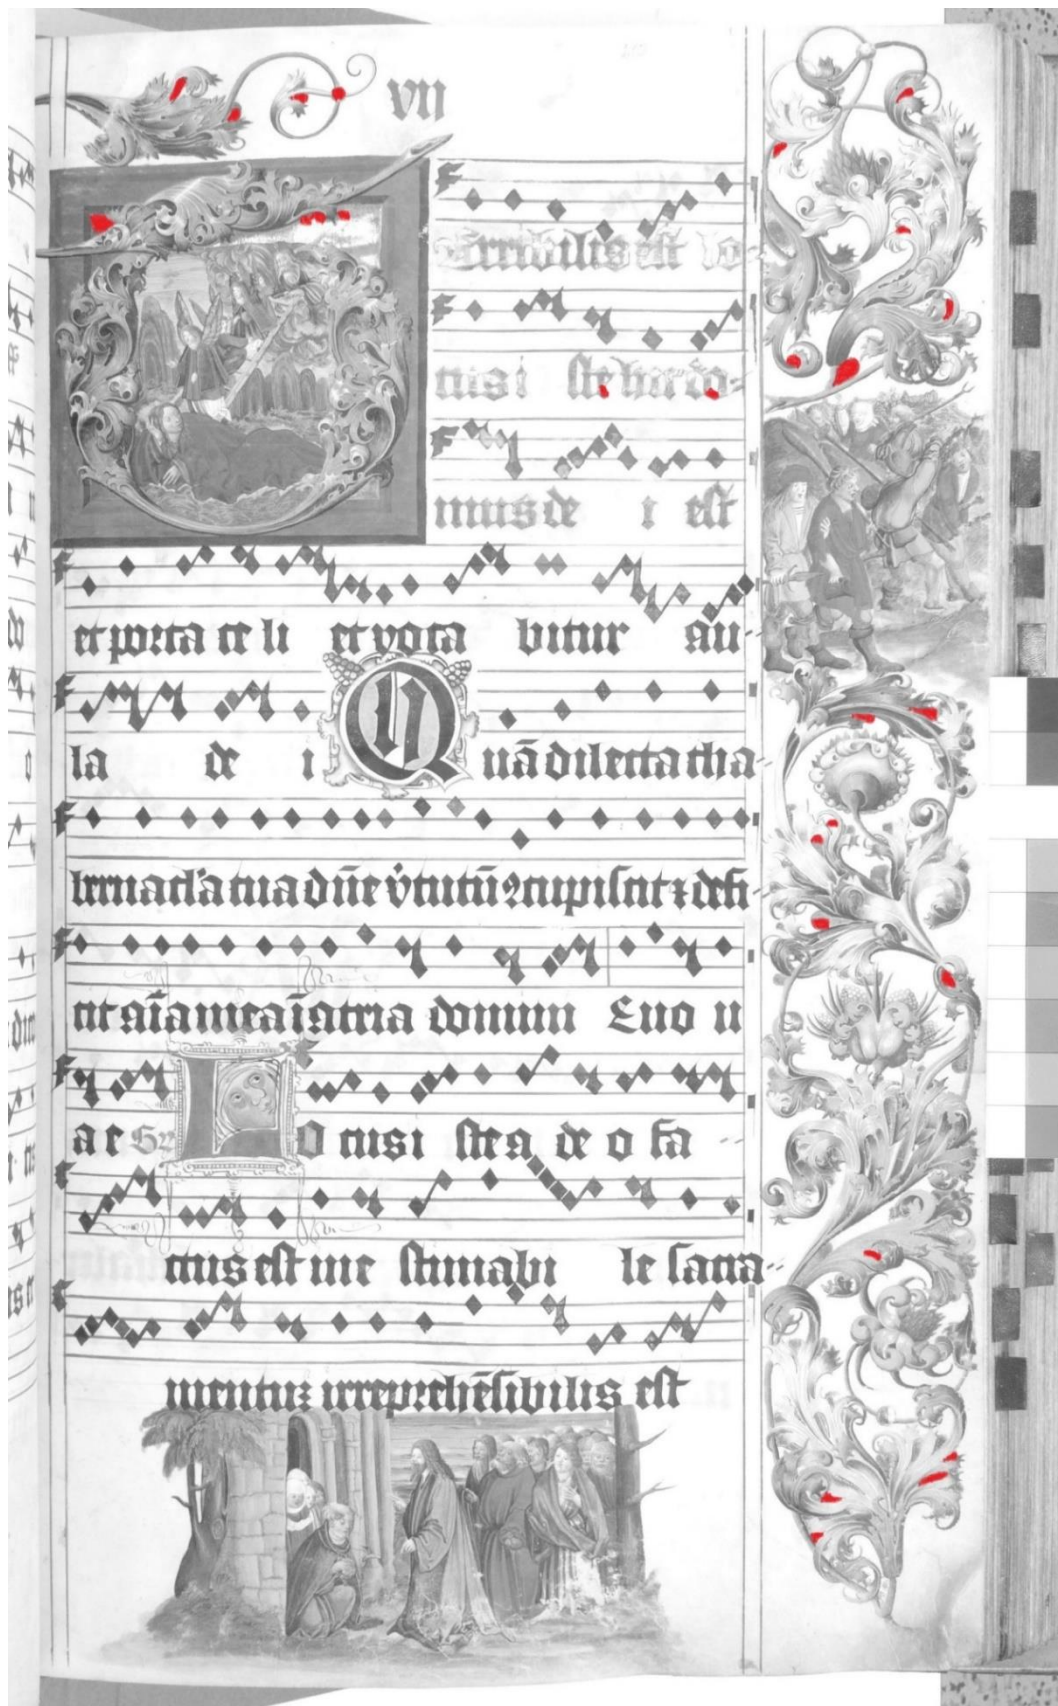 VII
Terribilis est lo-
cus i ste hic do-
mus de i est
et porta ce li et voca bitur au-
la de i Quā dilecta tha-
bernacl'a tua dn̄e v̓tutū ꝯcupiscit ⁊ defi-
cit aīa mea ī atria domini Euo u
a e Gr Lo cus i ste a de o fa
ctus est ine stimabi le sacra-
mentuꝫ irreprehēsibilis est